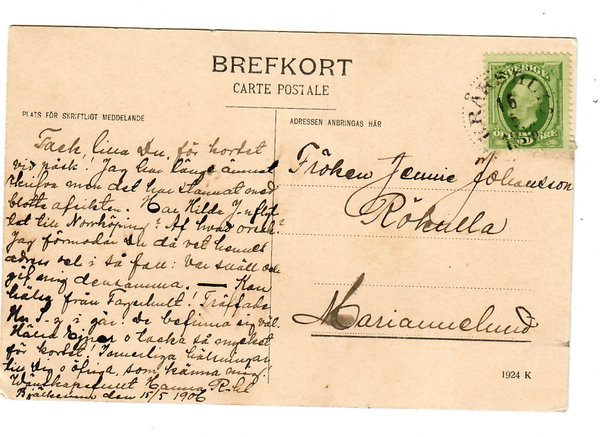 BREFKORT
CARTE POSTALE
SVERIGE
PLATS FÖR SKRIFTLIGT MEDDELANDE
ADRESSEN ANBRINGAS HÄR
Tack lilla Du, för kortet
vid påsk! Jag har länge ämnat
skrifva men det har stannat med
blotta afsikten. Har Hilda J-n flyt
tat till Norrköping? Af hvad orsak?
Jag förmodar Du då vet hennes
adress vel i så fall: Var snäll och
gif mig densamma. — Kan
hälsa från Fagerhult! Träffade
i går! De befinna sig väl.
o tacka så mycket
för kortet! Innerliga hälsningar
till Dig o öfriga, som känna mig.
Vänskapsamt Hanna
den 15/5 1906
Fröken Jennie Johansson
Rökulla
Mariannelund
1924 K